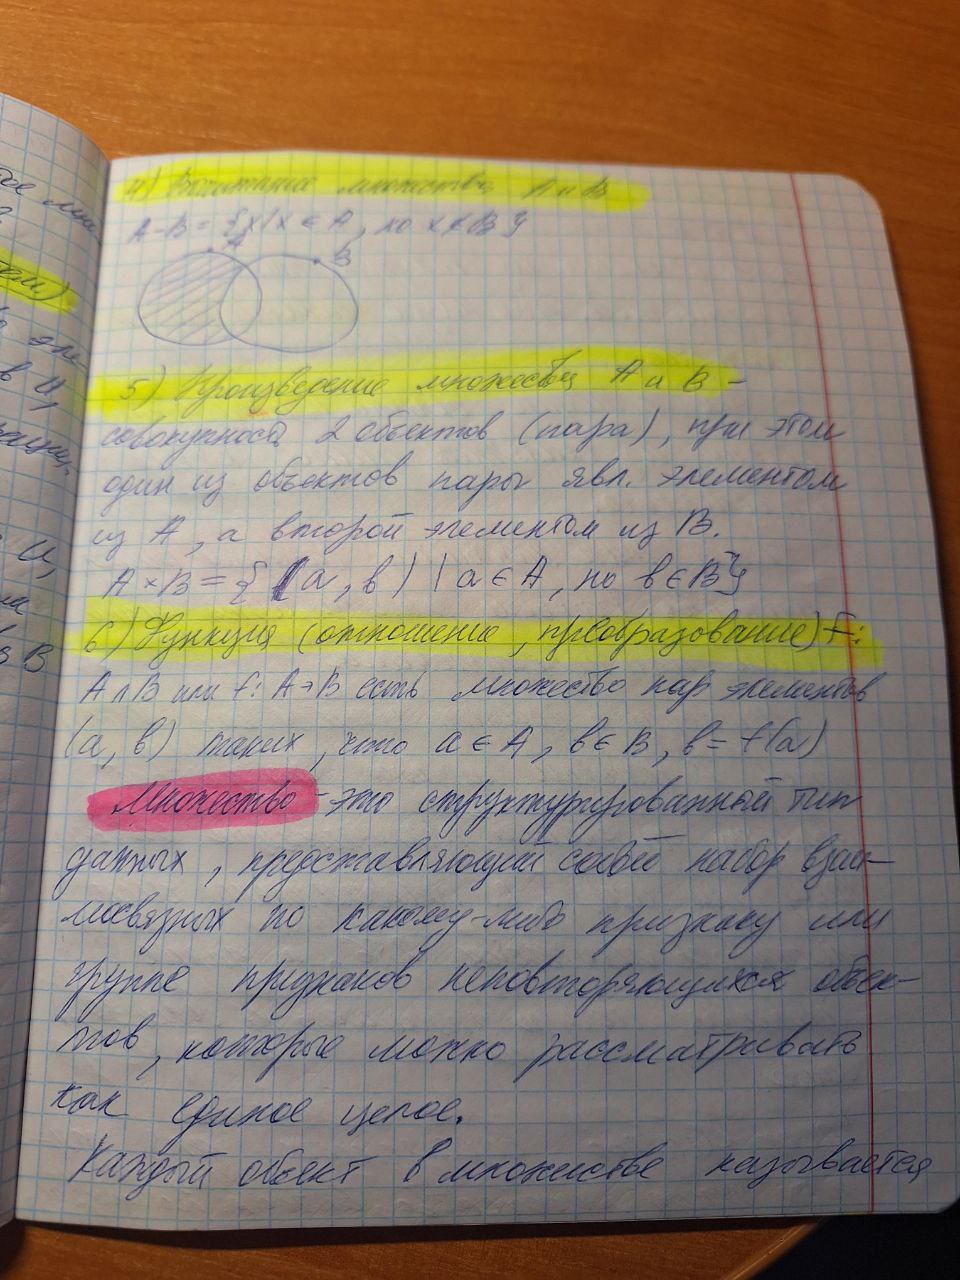 4) Вычитание множеств A и B
A-B = {x/x ∈ A, но x ∉ B}
A
B
5) Произведение множеств A и B -
совокупность 2 объектов (пара), при этом
один из объектов пары явл. элементом
из A, а второй элементом из B.
A×B = {(a, b) | a ∈ A, но b ∈ B}
6) Функция (отношение, преобразование) F:
A∧B или f: A→B есть множество пар элементов
(a, b) таких, что a ∈ A, b ∈ B, b = f(a)
Множество - это структурированный тип
данных, представляющий собой набор взаи-
мосвязных по какому-либо признаку или
группе признаков неповторяющихся объек-
тов, которые можно рассматривать
как единое целое.
Каждый объект в множестве называется